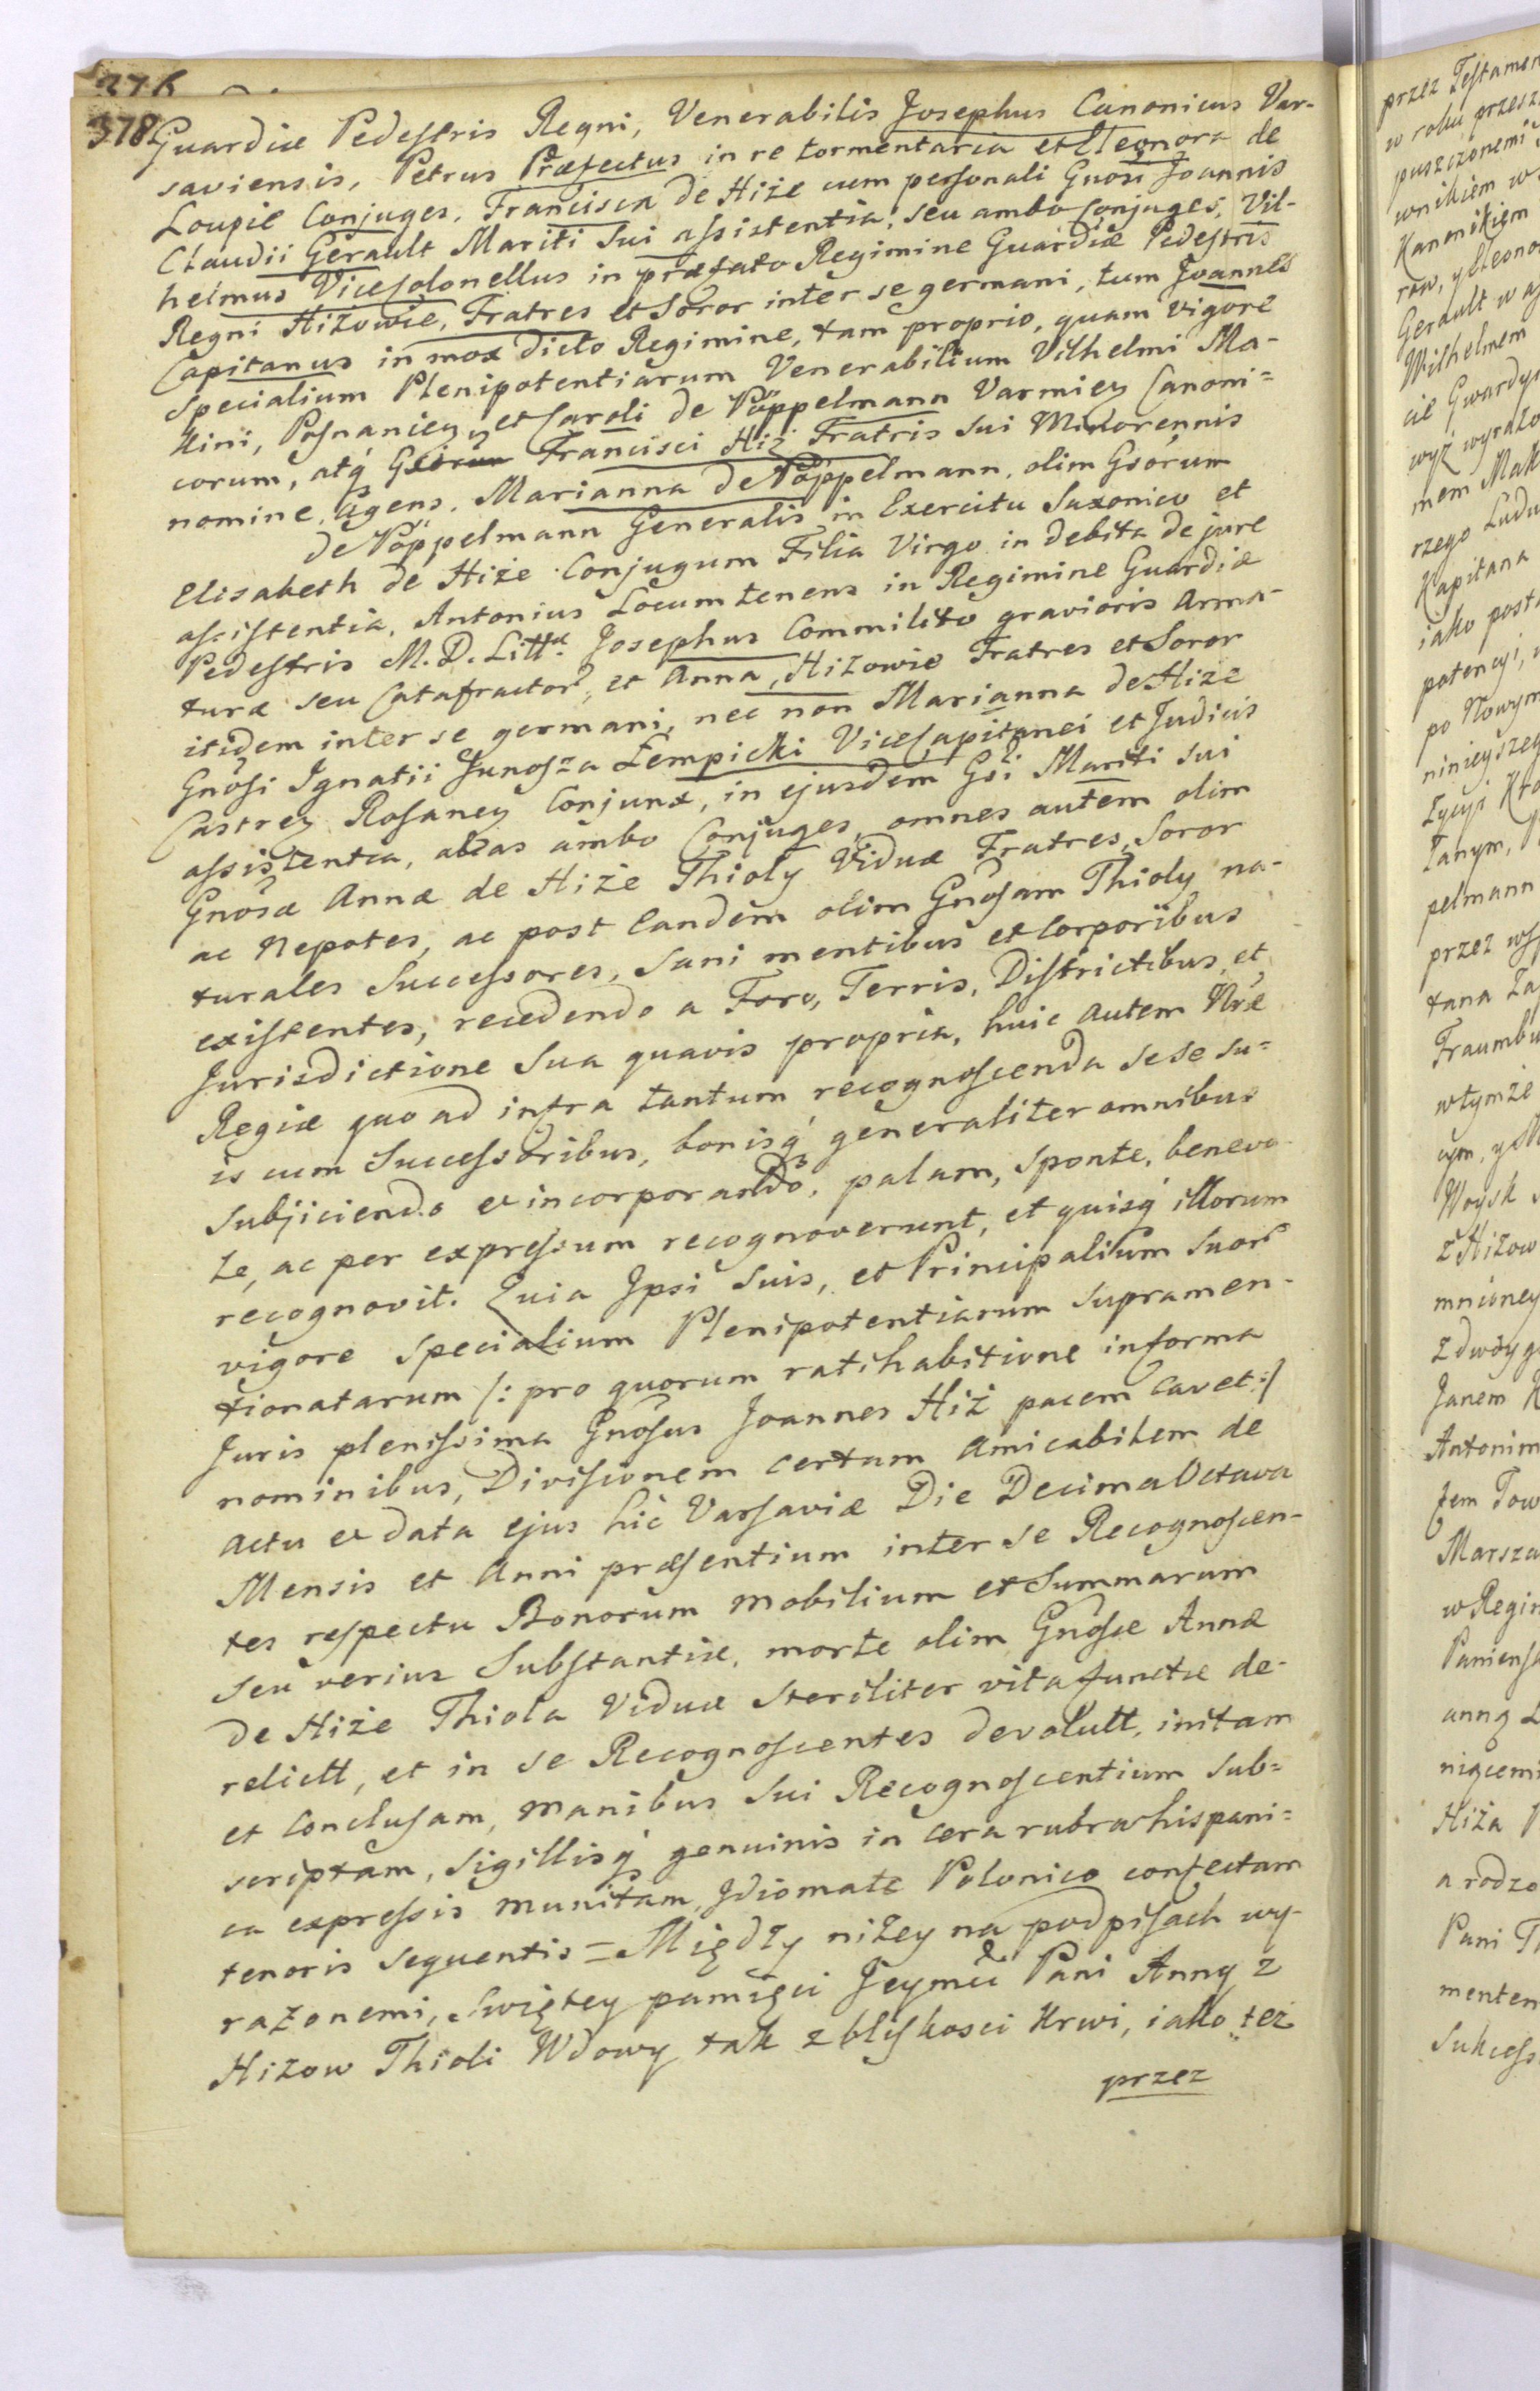 376
378
Guardiæ Pedestris Regni, Venerabilis Josephus Canonicus Var-
saviensis, Petrus Præfectus in re tormentaria et Eleonora de
Loupie Conjuges, Francisca de Hiże cum personali Gnosi Joannis
Claudii Gerault Mariti Sui assistentia, seu ambo Conjuges, Vil-
helmus ViceColonellus in præfato Regimine Guardiæ Pedestris
Regni Hiżowie, Fratres et Soror inter se germani, tum Joannes
Capitanus in mox dicto Regimine, tam proprio, quam vigore
Specialium Plenipotentiarum Venerabilium Vilhelmi Ma-
kini, Posnanien, et Caroli de Pöppelmann Varmien Canoni=
corum, atq Francisci Hiż Fratris Sui Minorennis
nomine, agens, Marianna de Pöppelmann, olim Gsorum
de Pöppelmann Generalis in Exercitu Saxonico et
Elisabeth de Hiże Conjugum Filia Virgo in debita de jure
assistentia, Antonius Locumtenens in Regimine Guardiæ
Pedestris M. D. Littæ Josephus Commilito gravioris arma-
turæ seu Catafractor, et Anna, Hiżowie Fratres et Soror
itidem inter se germani, nec non Marianna de Hiże
Gnosi Ignatii Junosza Łempicki ViceCapitanei et Judicis
Castren Rosanen Conjunx, in ejusdem Gsi Mariti sui
assistentia, alias ambo Conjuges, omnes autem olim
Gnosæ Annæ de Hiże Thioly Viduæ Fratres, Soror
ac Nepotes, ac post eandem olim Gnosam Thioly na-
turales Successores, Sani mentibus et Corporibus
existentes, recedendo a Foro, Terris, Districtibus, et
Jurisdictione Sua quavis propria, huic autem Nræ
Regiæ quo ad infra tantum recognoscenda sese su=
is cum Successoribus, bonisq generaliter omnibus
Subjiciendo et incorporando, palam, sponte, benevo-
le, ac per expressum recognoverunt, et quisq illorum
recognovit. Quia Ipsi Suis, et Principalium Suor
vigore specialium Plenipotentiarum supramen-
tionatarum /: pro quorum ratihabitione in forma
Juris plenissima Gnosus Joannes Hiż pacem cavet :/
nominibus, Divisionem certam amicabilem de
actu et data ejus hic Varsaviæ Die Decima Octava
Mensis et Anni præsentium inter se Recognoscen-
tes respectu Bonorum mobilium et Summarum
seu verius Substantiæ, morte olim Gnosæ Annæ
de Hiże Thiola Viduæ steriliter vita functæ de-
relictt, et in se Recognoscentes devolutt, initam
et Conclusam, manibus Sui Recognoscentium sub=
scriptam, Sigillisq genuinis in cera rubra hispani=
ca expressis munitam, Idiomate Polonico confectam
tenoris sequentis = Między niżey na podpisach wy-
rażonemi, Swiętey pamięci Jeymci Pani Anny z
Hizow Thioli Wdowy tak z bliskosci krwi, iako też
przez
przez Testamen
w roku przesz
puszczonemi
wnikiem w
Kanonikiem
Gerault w as
Wilhelmem
cie Gwardyi
wyż wyrażo
mem Mak
rzego Ludw
Kapitana
iako post
potencyi,
po Nowym
ninieyszeg
pelmann
przez
Fraumbu
w tymże
Woysk
z Hizow
mnieney
z dwoyg
Janem
Antonim
Marsza
w Regim
Paniensk
anną
Hiża
a rodzo
Pani
menten
Sukcess